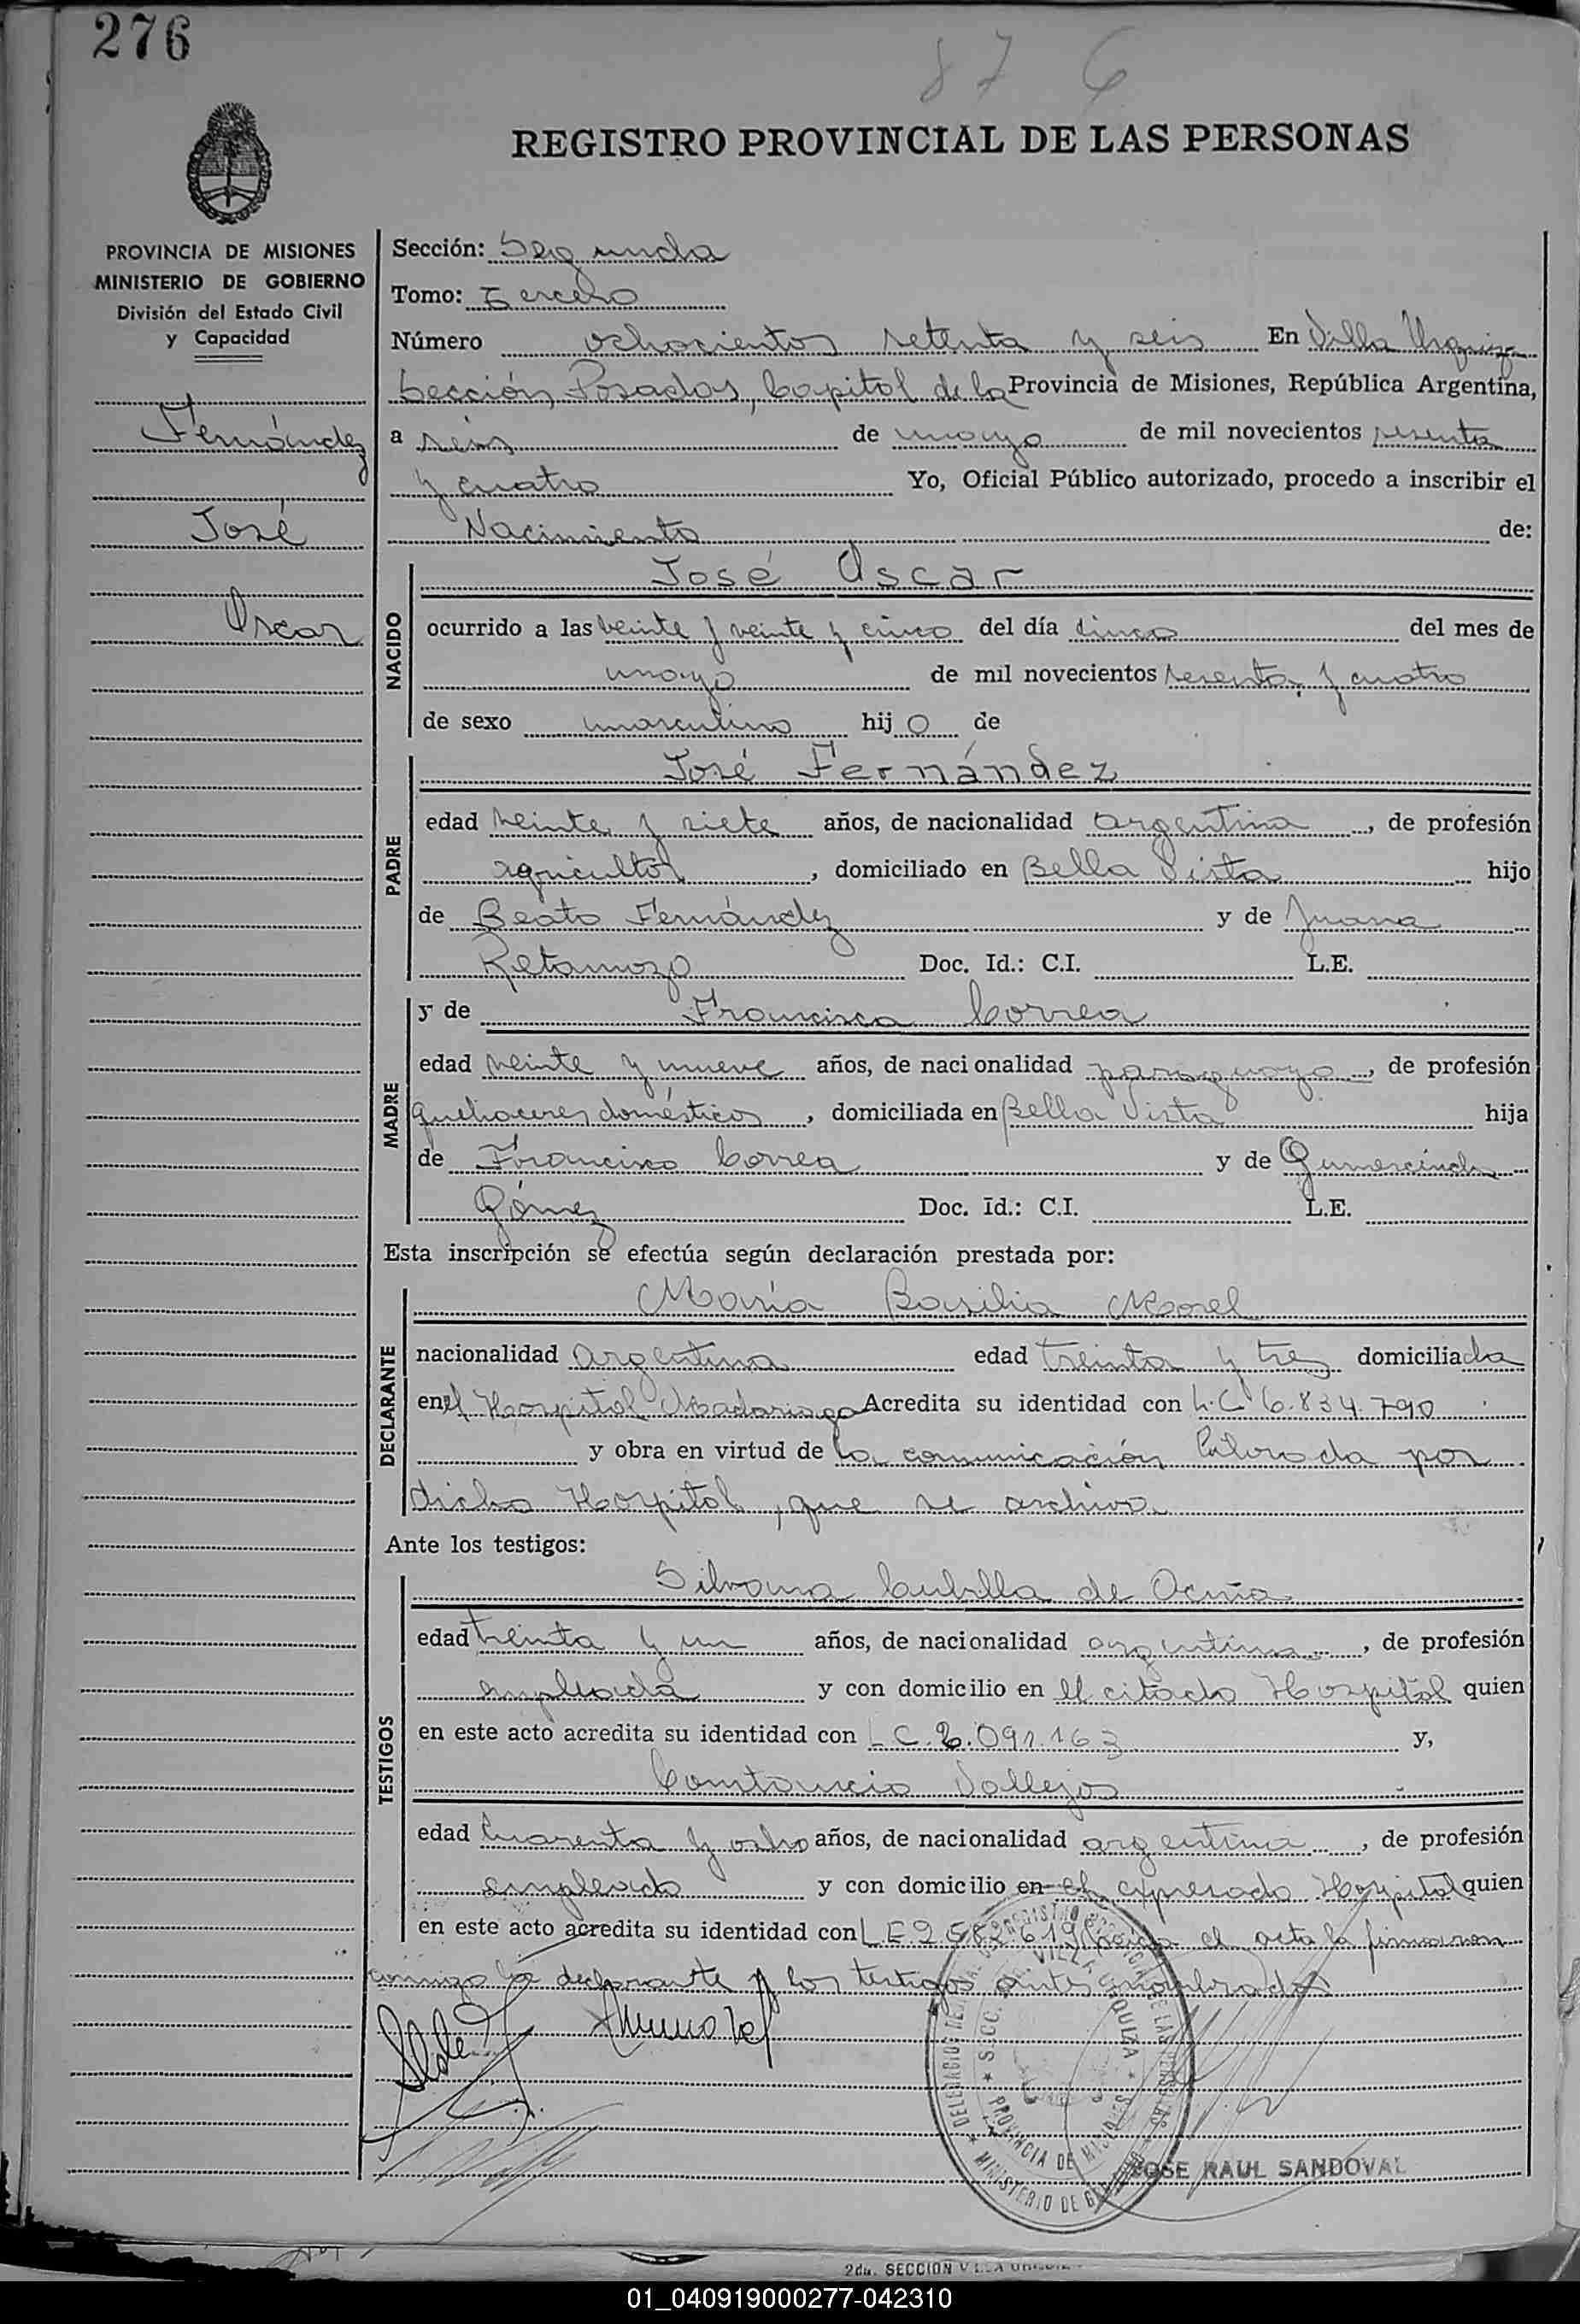 276
876
REGISTRO PROVINCIAL DE LAS PERSONAS
PROVINCIA DE MISIONES
MINISTERIO DE GOBIERNO
División del Estado Civil
y Capacidad
Fernández
José
Oscar
Sección: Segunda
Tomo: Tercero
Número ochocientos setenta y seis En Villa Urquiza
Sección, Posadas, Capital de la Provincia de Misiones, República Argentina,
a seis de mayo de mil novecientos sesenta
y cuatro Yo, Oficial Público autorizado, procedo a inscribir el
Nacimiento de:
NACIDO
José Oscar
ocurrido a las veinte y veinte y cinco del día cinco del mes de
mayo de mil novecientos sesenta y cuatro
de sexo masculino hijo de
PADRE
José Fernández
edad veinte y siete años, de nacionalidad argentina, de profesión
agricultor, domiciliado en Bella Vista hijo
de Beato Fernández y de Juana
Retamozo Doc. Id.: C.I. L.E.
MADRE
y de Francisca Correa
edad veinte y nueve años, de nacionalidad paraguaya, de profesión
quehaceres domésticos, domiciliada en Bella Vista hija
de Francisco Correa y de Gumercinda
Gómez Doc. Id.: C.I. L.E.
Esta inscripción se efectúa según declaración prestada por:
DECLARANTE
María Basilia Morel
nacionalidad argentina edad treinta y tres domiciliada
en el Hospital Madariaga Acredita su identidad con L.C 6.834.790
y obra en virtud de la comunicación librada por
dicho Hospital, que se archiva
Ante los testigos:
TESTIGOS
Silvana Cubilla de Ocuña
edad treinta y un años, de nacionalidad argentina, de profesión
empleada y con domicilio en el citado Hospital quien
en este acto acredita su identidad con L C. 2.091.163 y,
Constancio Vallejos
edad cuarenta y ocho años, de nacionalidad argentina, de profesión
empleado y con domicilio en el expresado Hospital quien
en este acto acredita su identidad con L E. 2.582.619 el acta la firmaron
conmigo la declarante y los testigos antes nombrados
SECC. VILLA URQUIZA
PROVINCIA DE MISIONES
MINISTERIO DE
JOSE RAUL SANDOVAL
2da. SECCION
01_040919000277-042310